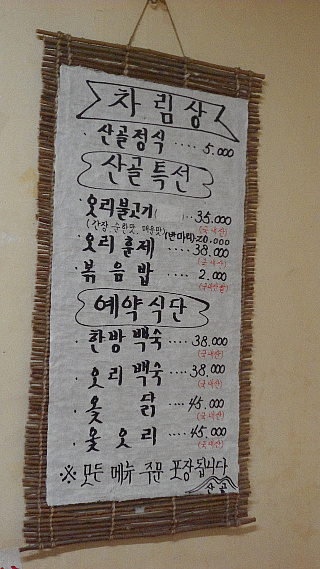 차림상
산골정식 .... 5.000
산골특선
오리불고기 ... 35.000
(간장 순한맛, 매운맛) (국내산)
(반마리)20.000
오리훈제 .... 38.000
(국내산)
볶음밥 .... 2.000
(국내산쌀)
예약식단
한방백숙 .... 38.000
(국내산)
오리백숙 .... 38.000
(국내산)
옻 닭 .... 45.000
(국내산)
옻오리 .... 45.000
(국내산)
※ 모든 메뉴 주문 포장됩니다
산골